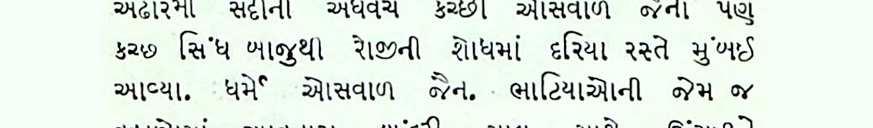 અઢારમી સદીની અધવચ કચ્છી ઓસવાળ જૈનો પણ
કચ્છ સિંધ બાજુથી રોજીની શોધમાં દરિયા રસ્તે મુંબઈ
આવ્યા. ધર્મે ઓસવાળ જૈન. ભાટિયાઓની જેમ જ